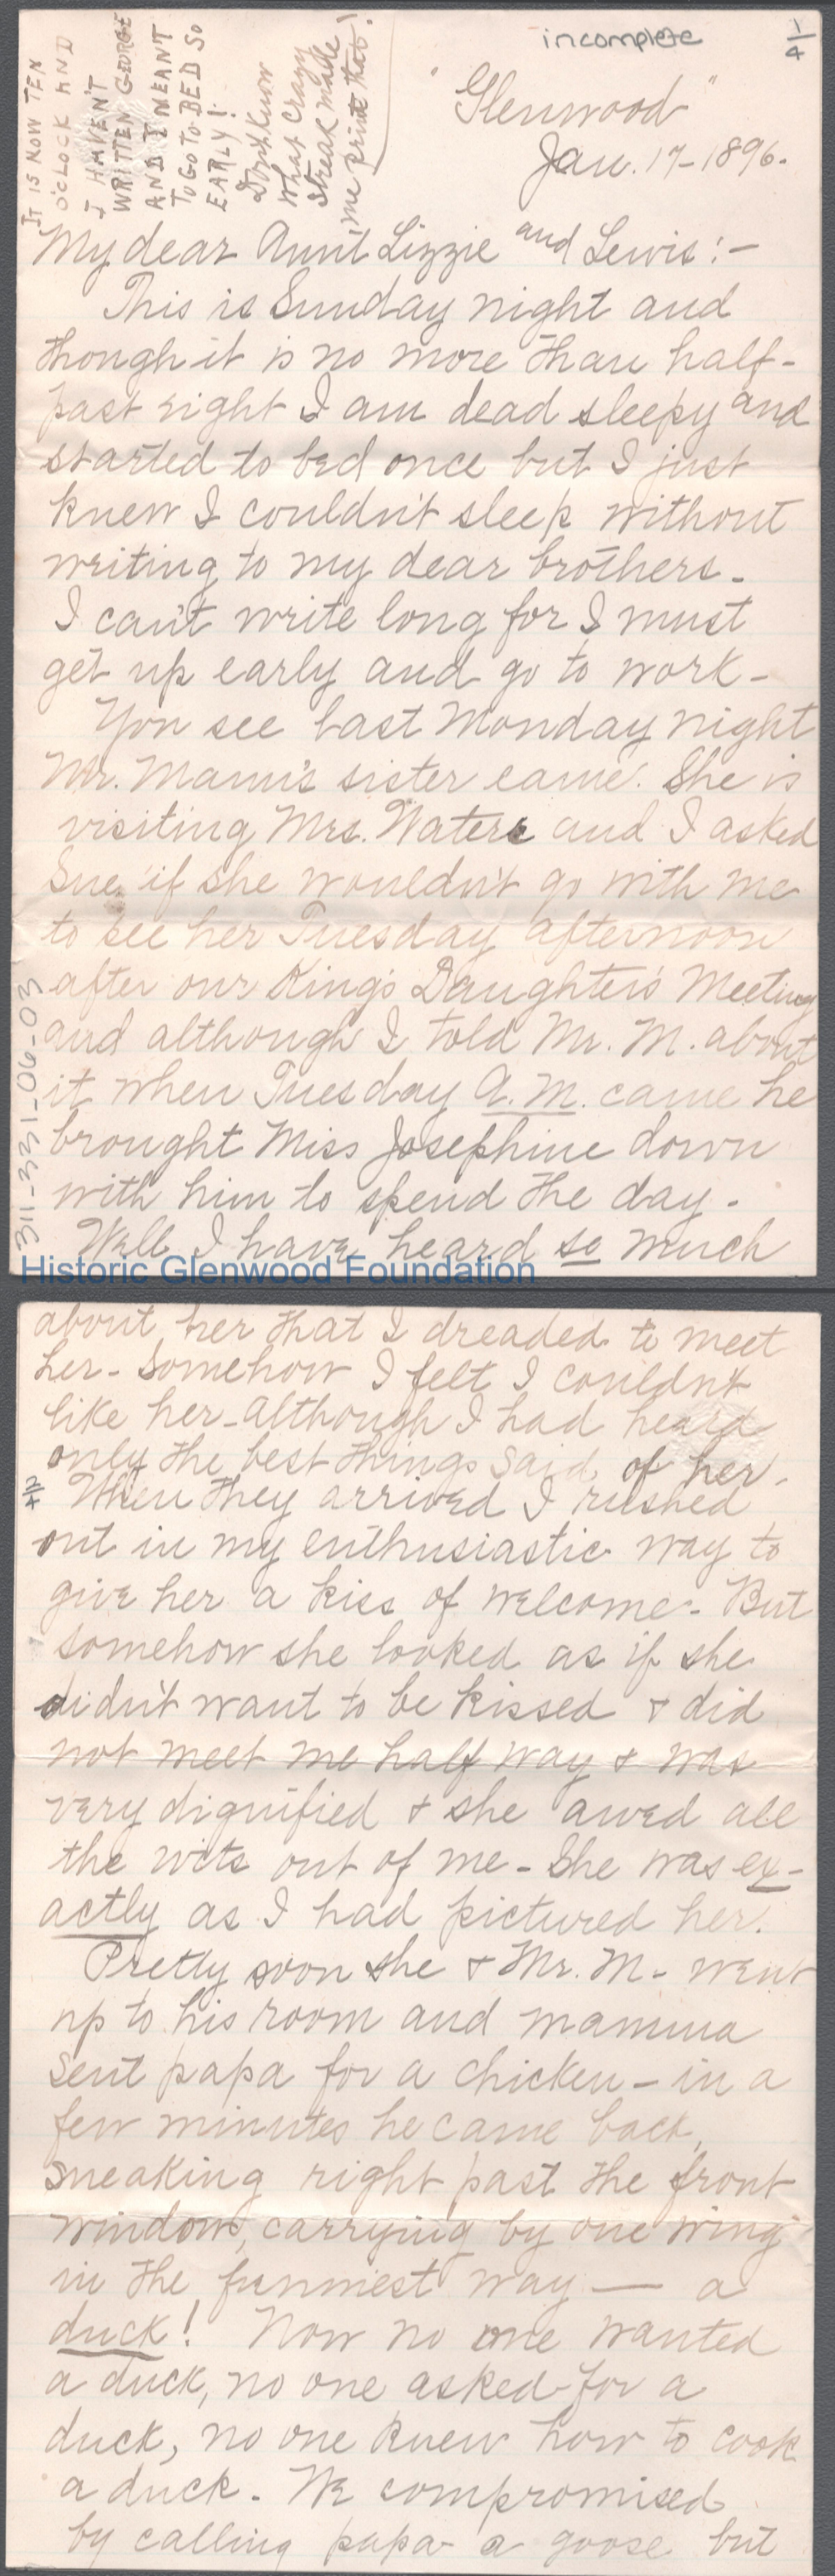 incomplete
1/4
IT IS NOW TEN
O'CLOCK AND
I HAVEN'T
WRITTEN GEORGE
AND I MEANT
TO GO TO BED SO
EARLY!
Don't know
what crazy
streak made
me print that!
"Glenwood"
Jan. 17-1896.
My dear Aunt Lizzie and Lewis:-
This is Sunday night and
though it is no more than half-
past eight I am dead sleepy and
started to bed once but I just
knew I couldn't sleep without
writing to my dear brothers.
I can't write long for I must
get up early and go to work-
You see last Monday night
Mr. Mann's sister came. She is
visiting Mrs. Waters and I asked
Sue if she wouldn't go with me
to see her Tuesday afternoon
after our King's Daughters Meeting
and although I told Mr. M. about
it when Tuesday A.M. came he
brought Miss Josephine down
with him to spend the day.
Well I have heard so much
311-331-06-03
Historic Glenwood Foundation
about her that I dreaded to meet
her- Somehow I felt I couldn't
like her-although I had heard
only the best things said of her.
2/4
When they arrived I rushed
out in my enthusiastic way to
give her a kiss of welcome- But
somehow she looked as if she
didn't want to be kissed & did
not meet me half way & was
very dignified & she awed all
the wits out of me- She was ex-
actly as I had pictured her.
Pretty soon she & Mr. M- went
up to his room and mamma
sent papa for a chicken - in a
few minutes he came back,
sneaking right past the front
window, carrying by one wing
in the funniest way — a
duck! Now no one wanted
a duck, no one asked for a
duck, no one knew how to cook
a duck. We compromised
by calling papa a goose but